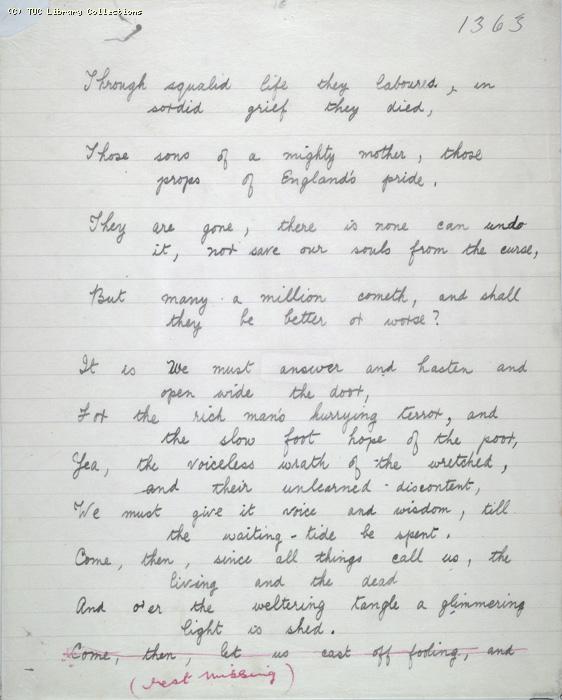 (C) TUC Library Collections
1363
Through squalid life they laboured, in
sordid grief they died,
Those sons of a mighty mother, those
props of England's pride.
They are gone, there is none can undo
it, nor save our souls from the curse,
But many a million cometh, and shall
they be better or worse?
It is We must answer and hasten and
open wide the door,
For the rich man's hurrying terror, and
the slow foot hope of the poor,
Yea, the voiceless wrath of the wretched,
and their unlearned discontent,
We must give it voice and wisdom, till
the waiting-tide be spent.
Come, then, since all things call us, the
living and the dead
And o'er the weltering tangle a glimmering
light is shed.
Come, then, let us cast off fooling, and
(rest missing)